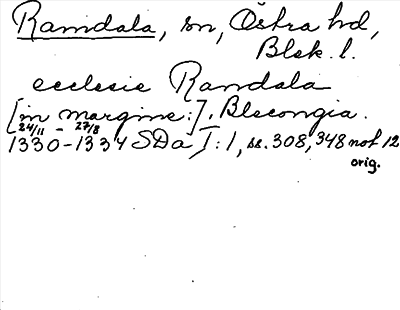 Ramdala, sn, Östra hd,
Blek. l.
ecclesie Ramdala
[in margine:], Blecongia.
24/11 27/8
1330-1334 SDa I:1, ss. 308, 348 not 12
orig.